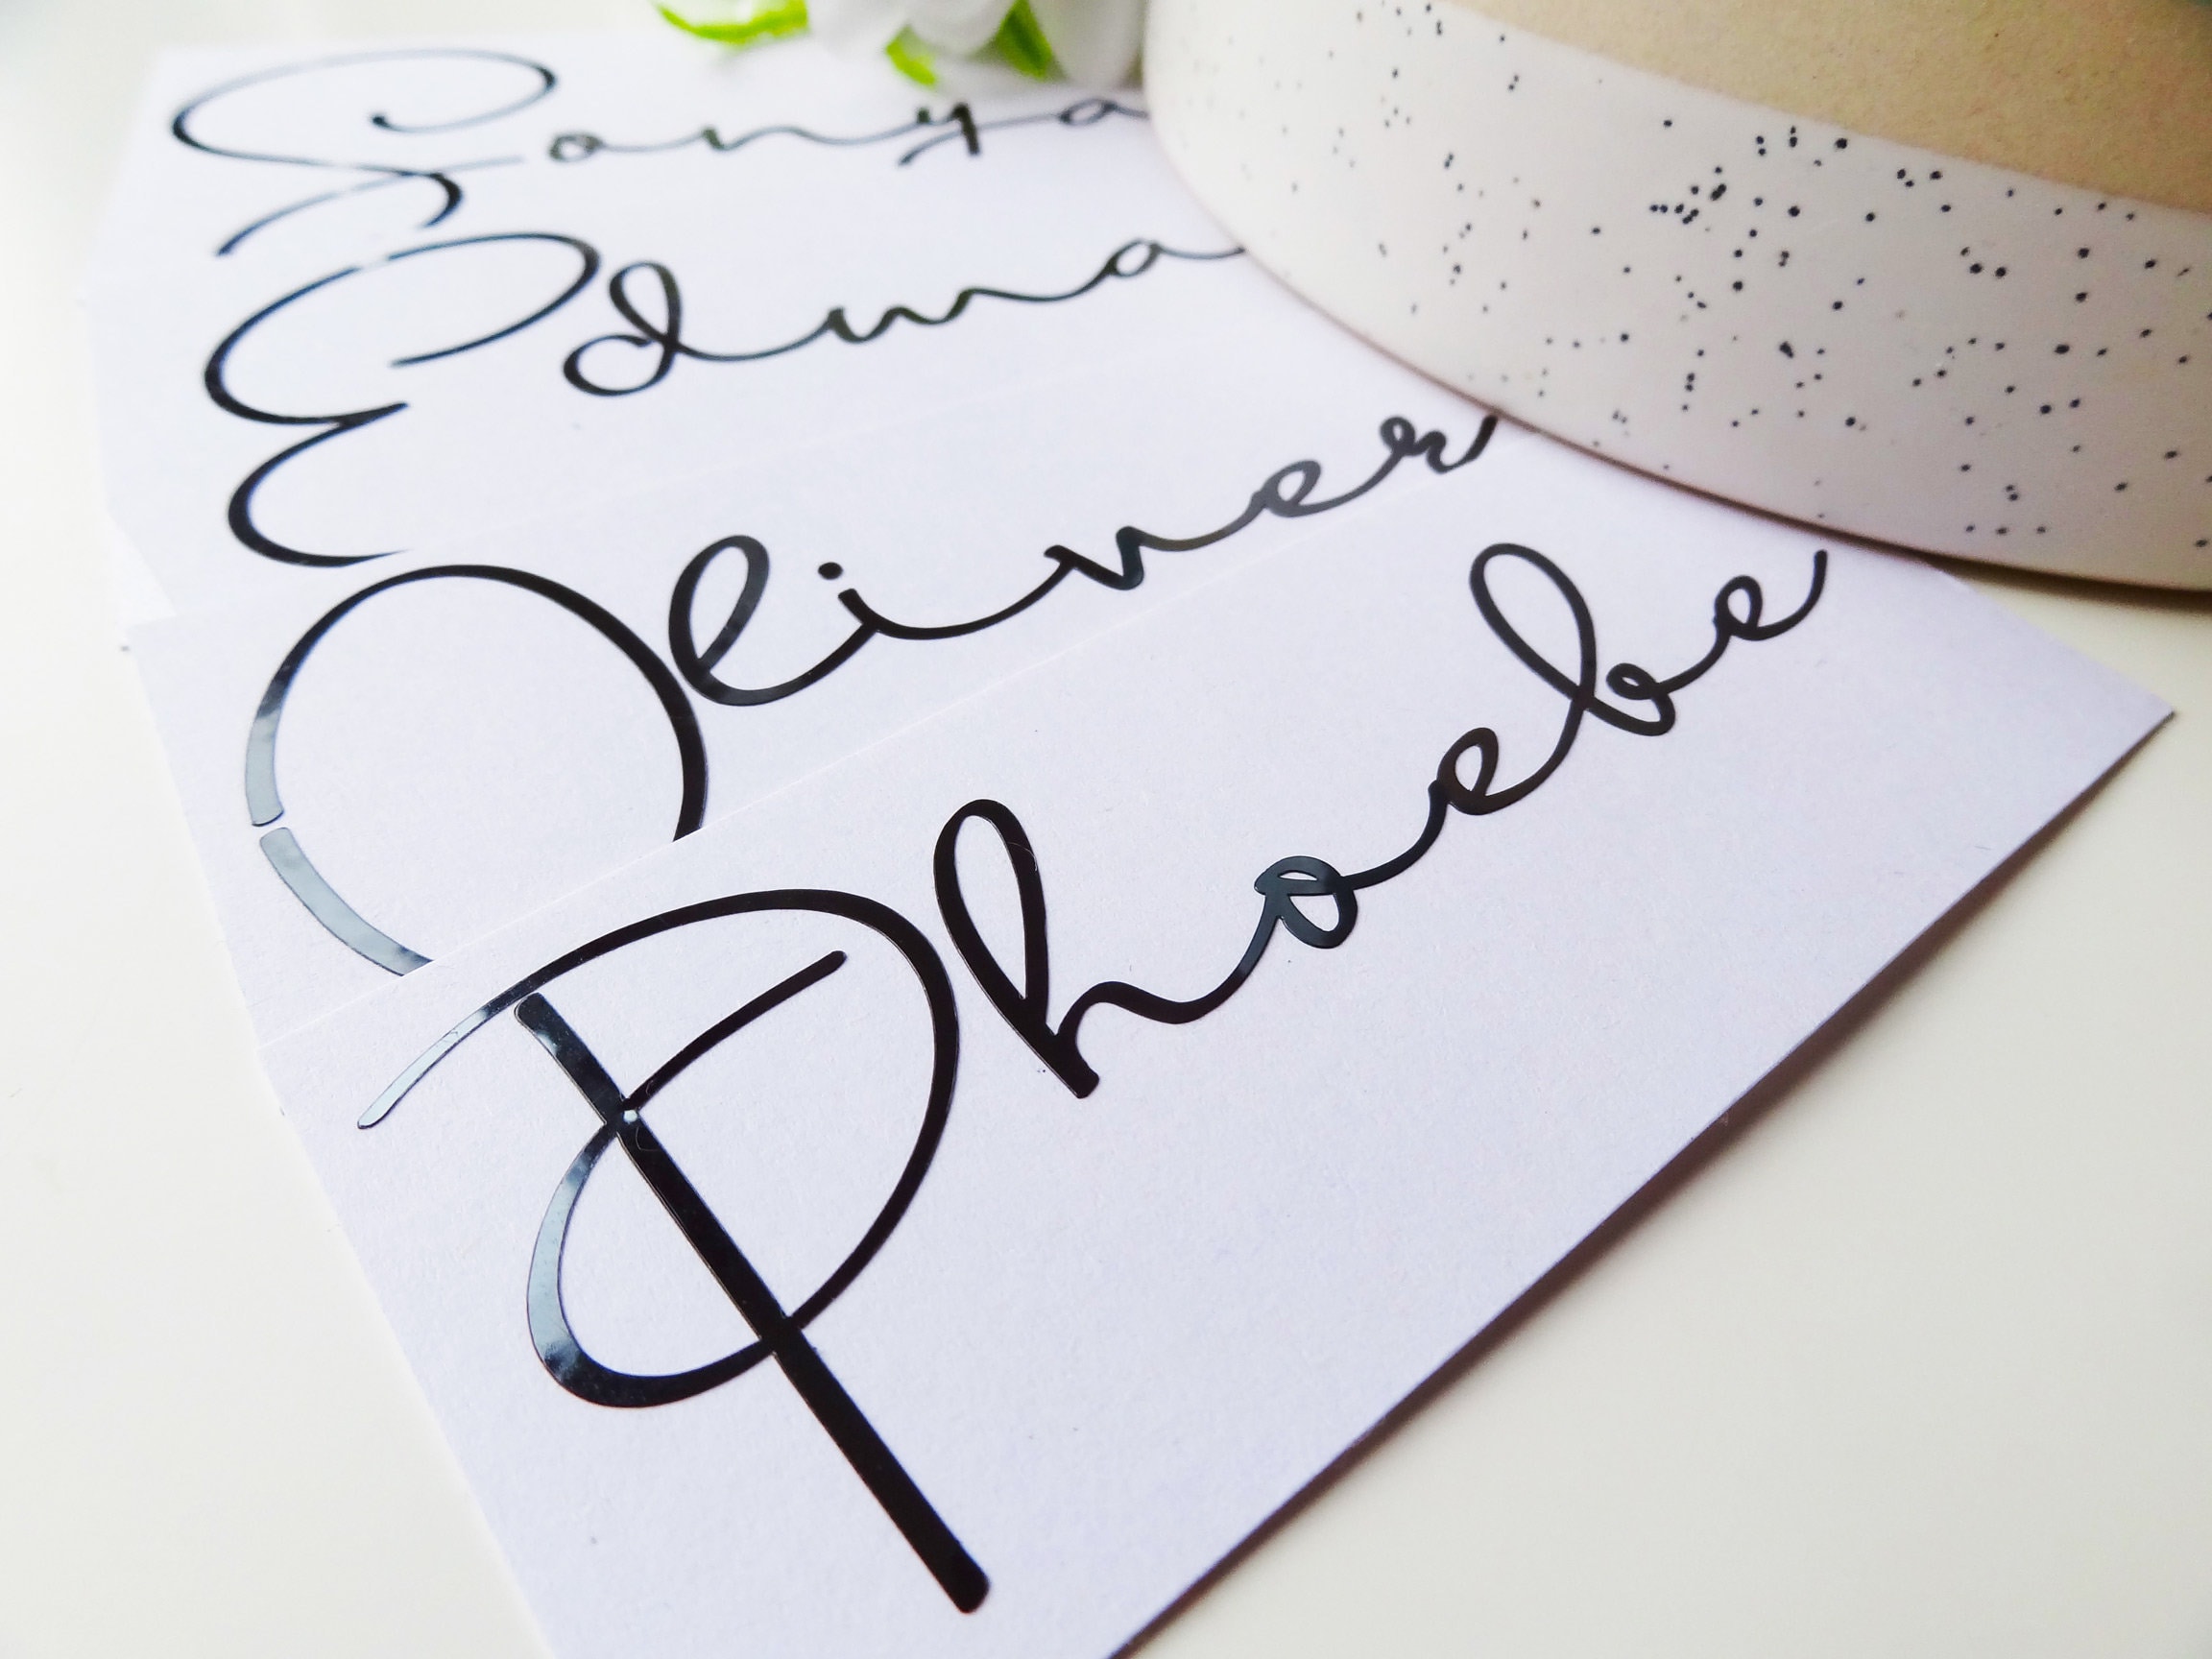 Sonya
Edwa
Oliver
Phoebe